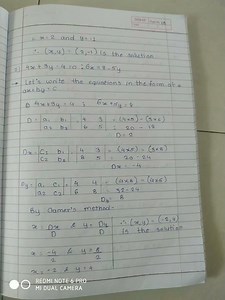 ∴ x = 2 and y = -1
∴ (x,y) = (2,-1) is the solution
4x + 3y = 4 ; 6x = 8 - 5y
Let's write the equations in the form of
ax + by = c
4x + 3y = 4 ; 6x + 5y = 8
D = | a₁ b₁ | = | 4 3 | = (4×5) - (3×6)
a₂ b₂ 6 5 = 20 - 18
D = 2
Dx = | c₁ b₁ | = | 4 3 | = (4×5) - (3×8)
c₂ b₂ 8 5 = 20 - 24
Dx = -4
Dy = | a₁ c₁ | = | 4 4 | = (4×8) - (4×6)
a₂ c₂ 6 8 = 32 - 24
Dy = 8
By Cramer's method -
x = Dx/D & y = Dy/D ∴ (x,y) = (-2,4)
is the solution
x = -4/2 & y = 8/2
x = -2 & y = 4
REDMI NOTE 6 PRO
MI DUAL CAMERA